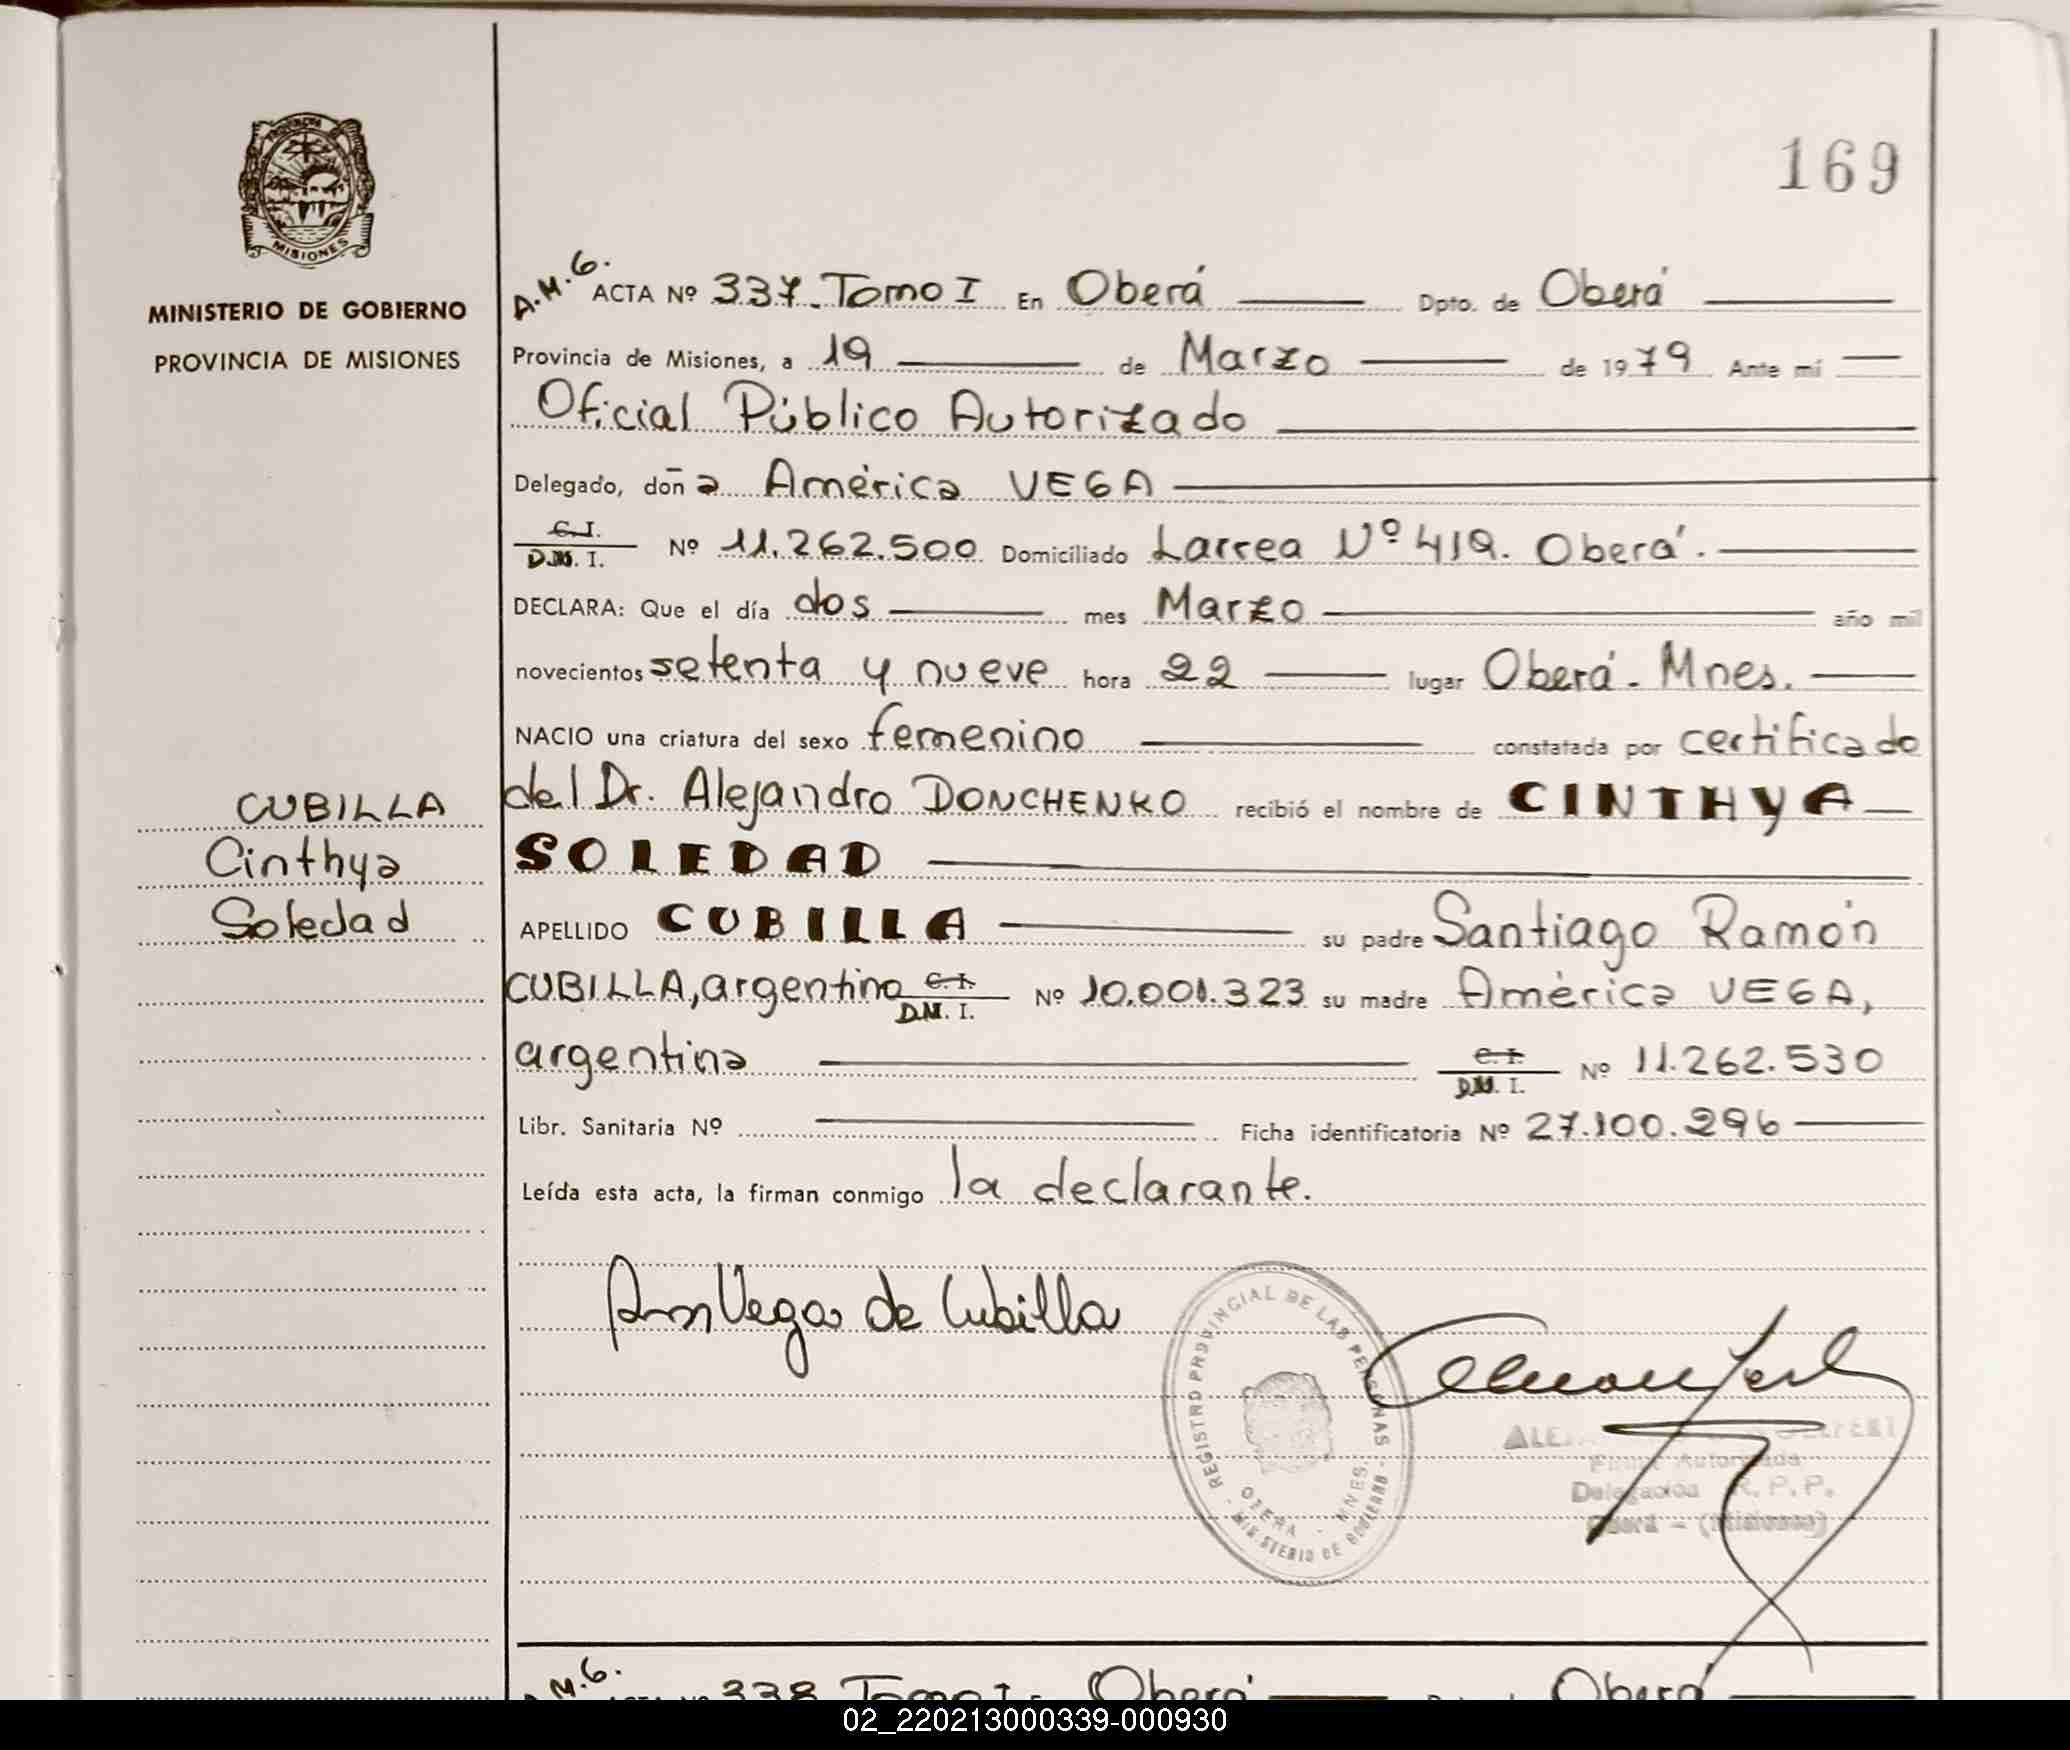 169
PROVINCIA
MISIONES
MINISTERIO DE GOBIERNO
PROVINCIA DE MISIONES
A.M.G.
ACTA Nº 337. Tomo I En Oberá Dpto. de Oberá
Provincia de Misiones, a 19 de Marzo de 1979 Ante mí
Oficial Público Autorizado
Delegado, doña América VEGA
C.I. D.N.I. Nº 11.262.500 Domiciliado Larrea Nº 419. Oberá.
DECLARA: Que el día dos mes Marzo año mil
novecientos setenta y nueve hora 22 lugar Oberá - Mnes.
NACIO una criatura del sexo femenino constatada por certificado
del Dr. Alejandro DONCHENKO recibió el nombre de CINTHYA
SOLEDAD
APELLIDO CUBILLA su padre Santiago Ramón
CUBILLA, argentino C.I. D.N.I. Nº 10.001.323 su madre América VEGA,
argentina C.I. D.N.I. Nº 11.262.530
Libr. Sanitaria Nº Ficha identificatoria Nº 27.100.296
Leída esta acta, la firman conmigo la declarante.
CUBILLA
Cinthya
Soledad
Vega de Cubilla
REGISTRO PROVINCIAL DE LAS PERSONAS
OBERA - MNES.
MINISTERIO DE GOBIERNO
Autorizada
Delegación R. P. P.
Oberá - (Misiones)
M.G.
338 Tomo I Oberá Oberá
02_220213000339-000930